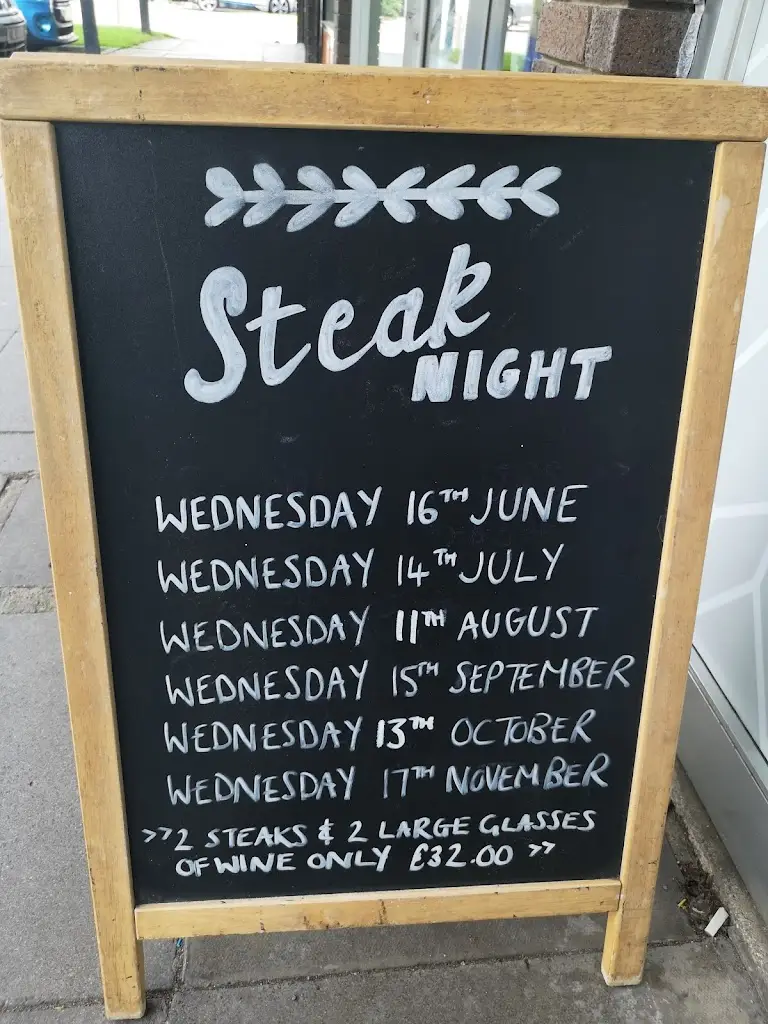 Steak
NIGHT
WEDNESDAY 16TH JUNE
WEDNESDAY 14TH JULY
WEDNESDAY 11TH AUGUST
WEDNESDAY 15TH SEPTEMBER
WEDNESDAY 13TH OCTOBER
WEDNESDAY 17TH NOVEMBER
>>2 STEAKS & 2 LARGE GLASSES
OF WINE ONLY £32.00 >>